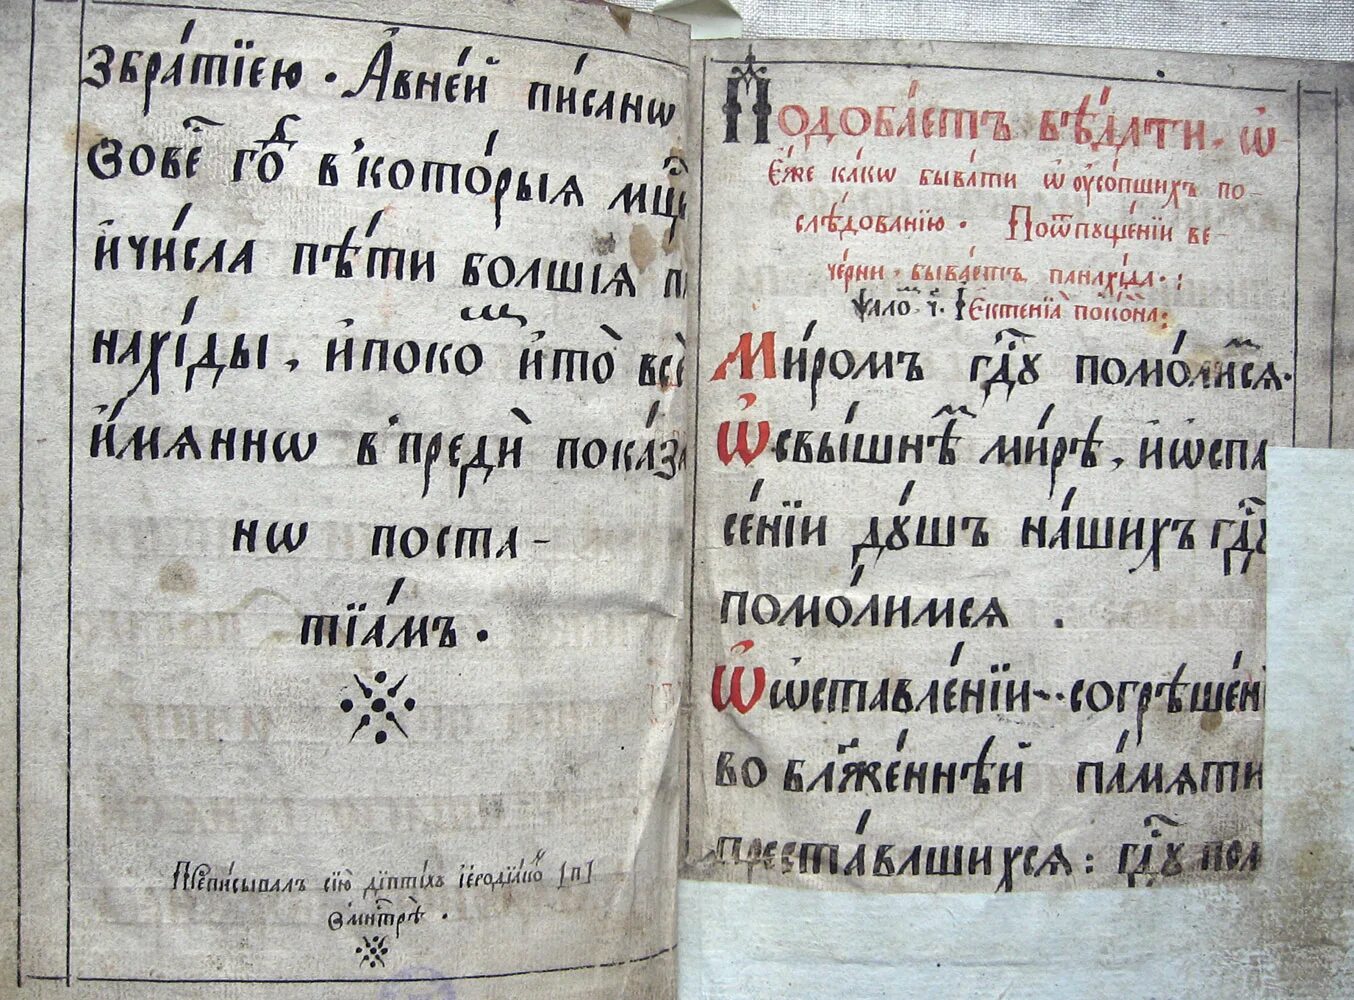 збра́тїею . А҆вне́й пи́санѡ
ѕове҃ го҃д в'кото́рыѧ мц҃ы
и҆чи́сла пѣ́ти болшїѧ па
нахі́ды , и҆поко и҆то̀ всѐ
и҆́мѧннѡ в'преди̾ пока́за
нѡ поста-
тїа́мъ .
Преписывалъ сїю̀ дїптѵхъ і҆еродїа́кон [п]
Ѕми҆трѐ .
Подоба́етъ вѣ́дати , ѡ҆
є҆́же ка́кѡ быва́ти ѡ҆ оусо́пшихъ по-
слѣ́дованїю . Поѿпꙋще́нїи ве-
че́рни , быва́етъ панахі́да . :
ѱало҃м ч҃ . І҆ектенїа̀ поко́йна :
Ми́ромъ гд҇ꙋ помо́лимсѧ .
Ѽ свы́шнѣм ми́рѣ , и҆ѡспа
се́нїи дꙋ́шъ на́шихъ гд҇ꙋ
помо́лимсѧ .
Ѽ ѡ҆ставле́нїи согрѣше́нї
во блаже́ннѣй па́мѧти
преста́влшихсѧ : гд҇ꙋ пом